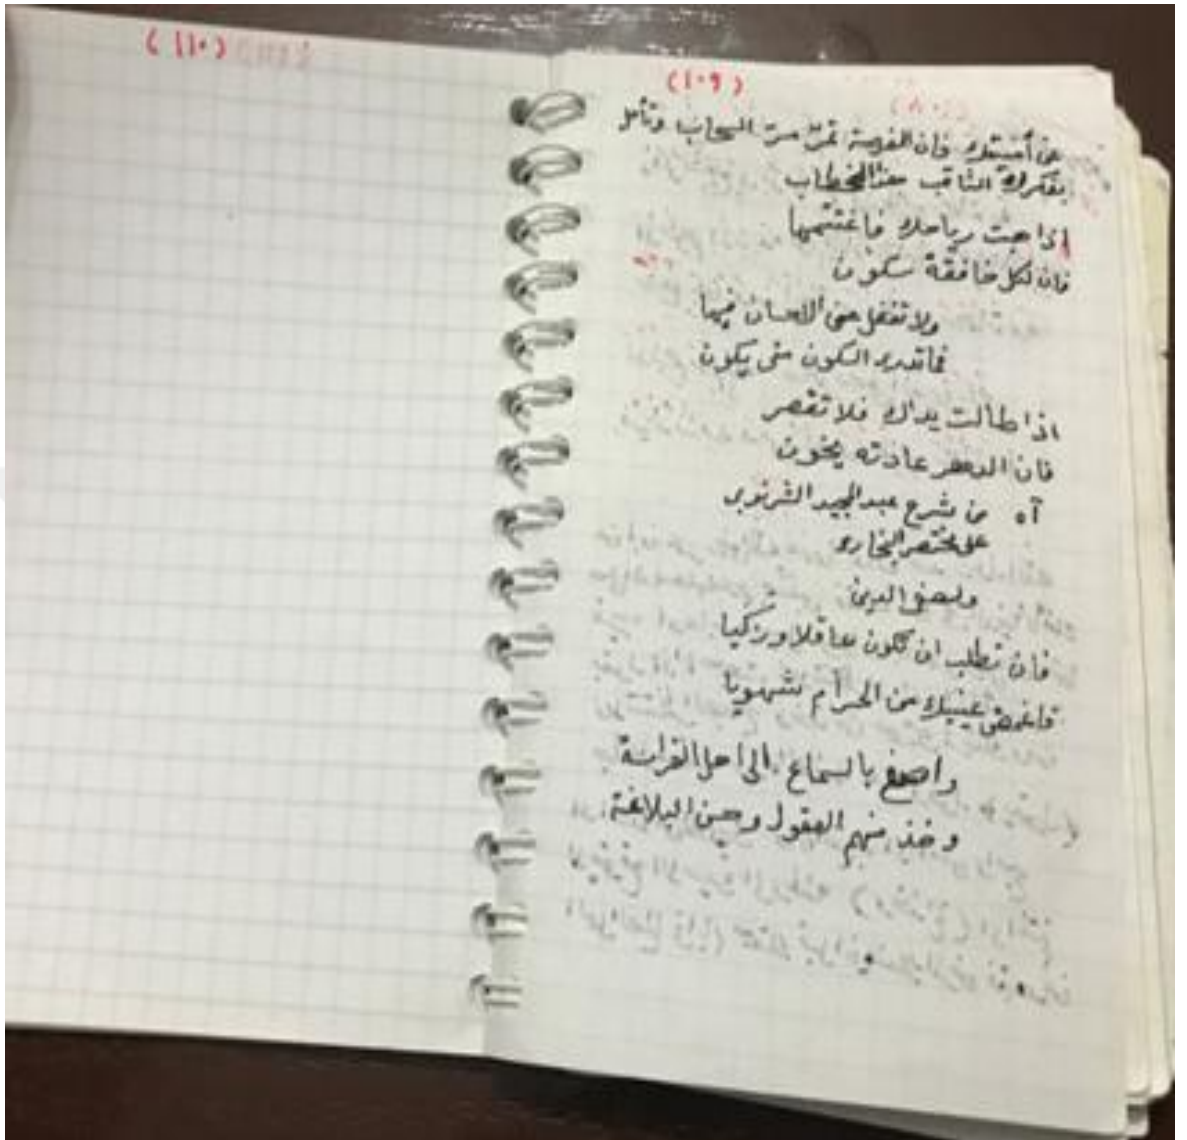 (١٠٩)
عن أمنيتك فان الفرصة تمرّ مرّ السحاب وتأمل
بفكرك الثاقب هذا الخطاب
إذا هبت رياحك فاغتنمها
فان لكل خافقة سكون
ولا تغفل عن الاحسان فيها
فما تدرى السكون متى يكون
اذا طالت يداك فلا تقصر
فان الدهر عادته يخون
آه من شرح عبد المجيد الشرنوبى
على مختصر البخارى
ولبعض
فان تطلب ان تكون عاقلا وزكيا
فاغمض عينيك من الحرام تشهويا
واصغ بالسماع الى اهل الفراسة
وخذ منهم العقول وحسن البلاغة
(١١٠)